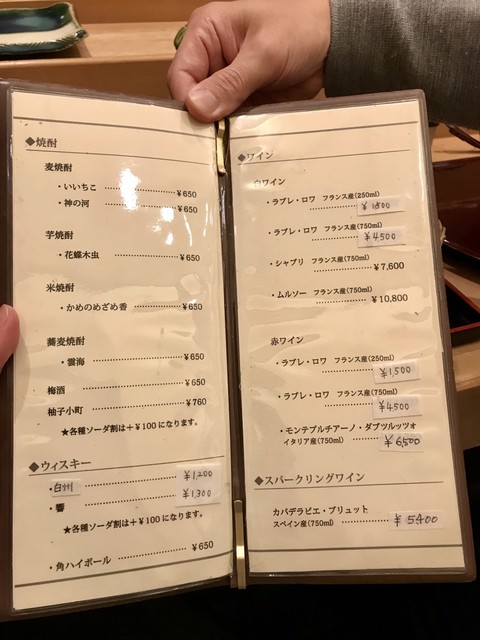 ◆焼酎
麦焼酎
・いいちこ ¥650
・神の河 ¥650
芋焼酎
・花蝶木虫 ¥650
米焼酎
・かめのめざめ香 ¥650
蕎麦焼酎
・雲海 ¥650
梅酒 ¥650
柚子小町 ¥760
★各種ソーダ割は+¥100になります。
◆ウィスキー
・白州 ¥1,200
・響 ¥1,300
★各種ソーダ割は+¥100になります。
・角ハイボール ¥650
◆ワイン
白ワイン
・ラブレ・ロワ フランス産(250ml)
¥1500
・ラブレ・ロワ フランス産(750ml)
¥4500
・シャブリ フランス産(750ml)
¥7,600
・ムルソー フランス産(750ml)
¥10,800
赤ワイン
・ラブレ・ロワ フランス産(250ml)
¥1,500
・ラブレ・ロワ フランス産(750ml)
¥4500
・モンテプルチアーノ・ダブツルッツォ
イタリア産(750ml) ¥6,500
◆スパークリングワイン
カバデラピエ・ブリュット
スペイン産(750ml) ¥5400